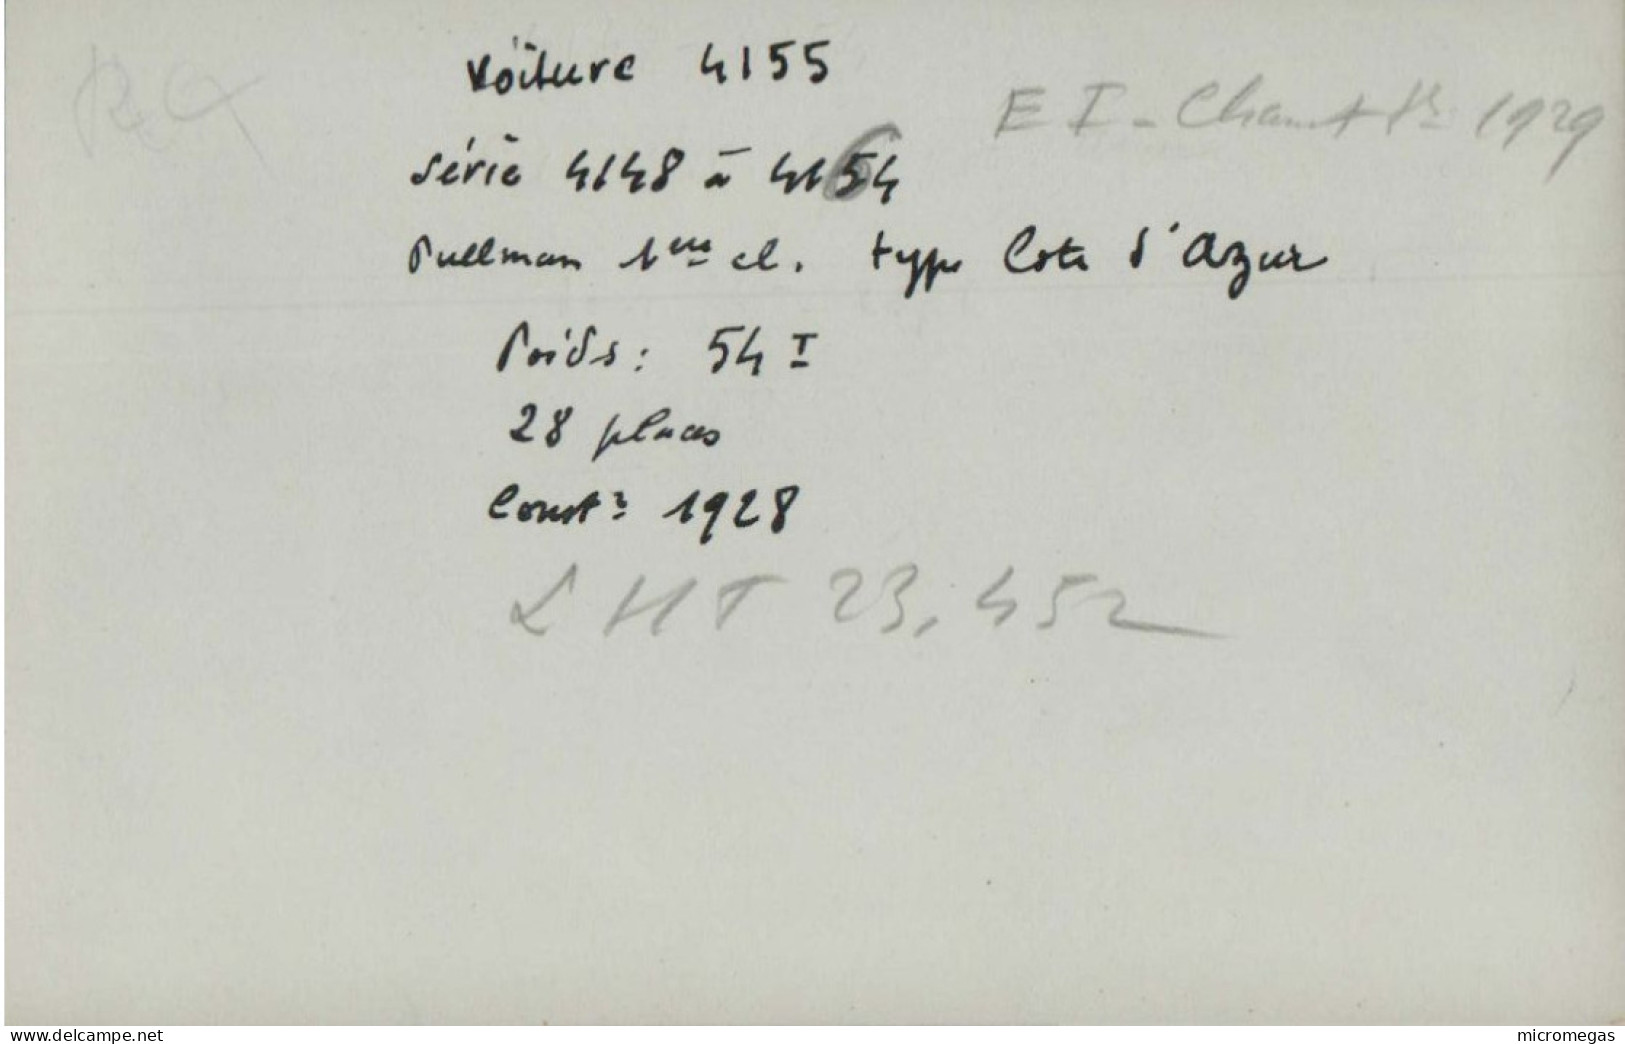 Voiture 4155
E I - 1929
Série 4148 à 4164
Pullman 1ère cl. type Cote d'Azur
Poids : 54 T
28 places
Constr 1928
LHT 23,452
www.delcampe.net
micromegas